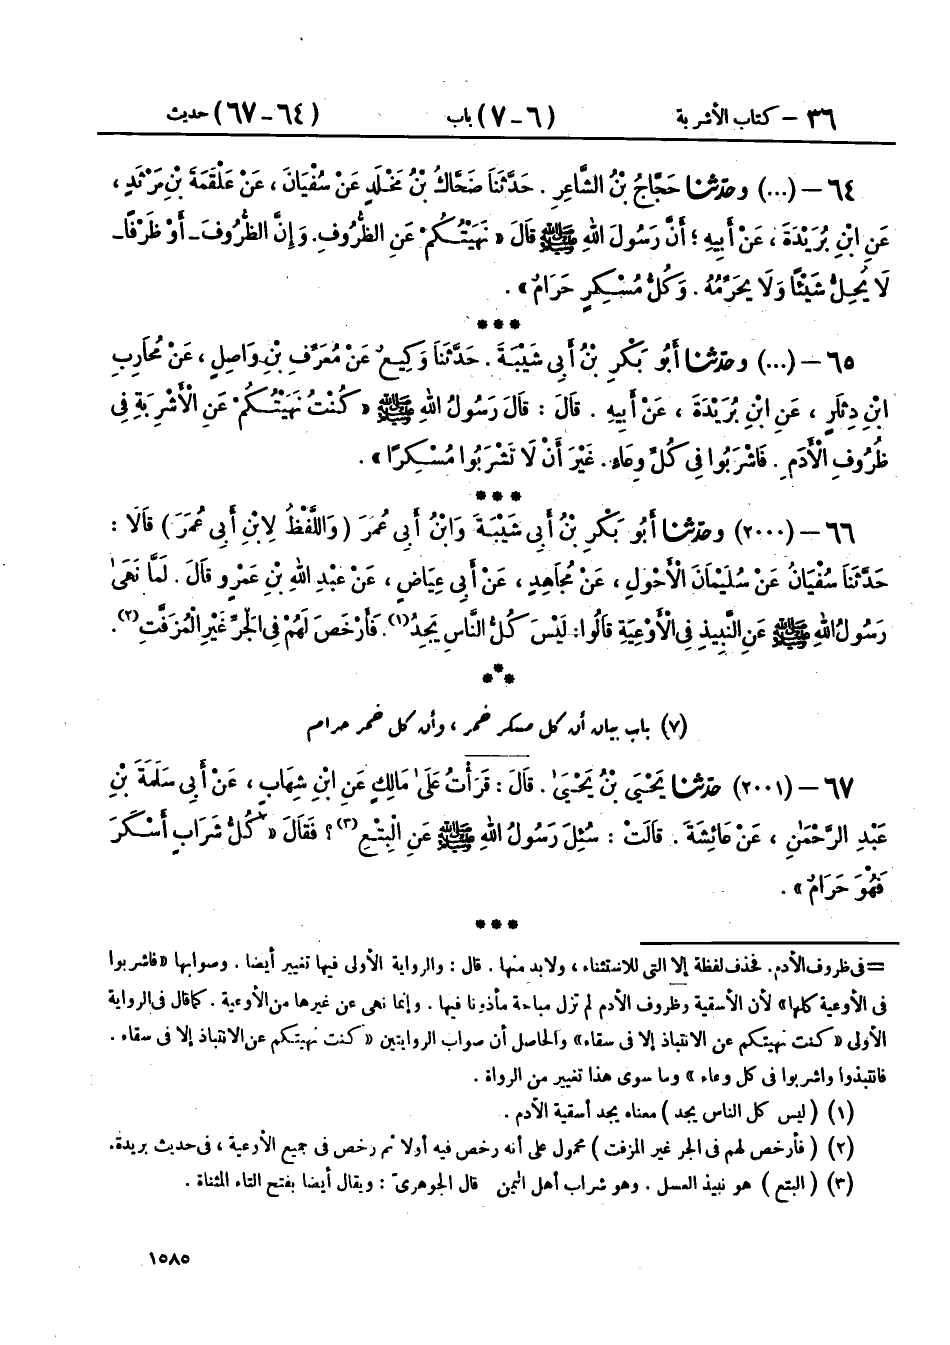 ٣٦ – كتاب الأشربة (٦–٧) باب (٦٤–٦٧) حديث
٦٤ – (...) وحَدَّثَنَا حَجَّاجُ بْنُ الشَّاعِرِ . حَدَّثَنَا ضَحَّاكُ بْنُ مَخْلَدٍ عَنْ سُفْيَانَ ، عَنْ عَلْقَمَةَ بْنِ مَرْثَدٍ ،
عَنِ ابْنِ بُرَيْدَةَ ، عَنْ أَبِيهِ ؛ أَنَّ رَسُولَ اللهِ ﷺ قَالَ « نَهَيْتُكُمْ عَنِ الظُّرُوفِ. وَإِنَّ الظُّرُوفَ ـ أَوْ ظَرْفًا ـ
لَا يُحِلُّ شَيْئًا وَلَا يُحَرِّمُهُ . وَكُلُّ مُسْكِرٍ حَرَامٌ » .
***
٦٥ – (...) وحَدَّثَنَا أَبُو بَكْرِ بْنُ أَبِي شَيْبَةَ . حَدَّثَنَا وَكِيعٌ عَنْ مُعَرِّفِ بْنِ وَاصِلٍ ، عَنْ مُحَارِبِ
ابْنِ دِثَارٍ ، عَنِ ابْنِ بُرَيْدَةَ ، عَنْ أَبِيهِ . قَالَ : قَالَ رَسُولُ اللهِ ﷺ « كُنْتُ نَهَيْتُكُمْ عَنِ الْأَشْرِبَةِ فِي
ظُرُوفِ الْأَدَمِ . فَاشْرَبُوا فِي كُلِّ وِعَاءٍ . غَيْرَ أَنْ لَا تَشْرَبُوا مُسْكِرًا » .
***
٦٦ – (٢٠٠٠) وحَدَّثَنَا أَبُو بَكْرِ بْنُ أَبِي شَيْبَةَ وَابْنُ أَبِي عُمَرَ ( وَاللَّفْظُ لِابْنِ أَبِي عُمَرَ ) قَالَا :
حَدَّثَنَا سُفْيَانُ عَنْ سُلَيْمَانَ الْأَحْوَلِ ، عَنْ مُجَاهِدٍ ، عَنْ أَبِي عِيَاضٍ ، عَنْ عَبْدِ اللهِ بْنِ عَمْرٍو قَالَ . لَمَّا نَهَىٰ
رَسُولُ اللهِ ﷺ عَنِ النَّبِيذِ فِي الْأَوْعِيَةِ قَالُوا: لَيْسَ كُلُّ النَّاسِ يَجِدُ(١). فَأَرْخَصَ لَهُمْ فِي الْجَرِّ غَيْرِ الْمُزَفَّتِ(٢).
***
(٧) باب بيان أن كل مسكر خمر ، وأن كل خمر حرام
٦٧ – (٢٠٠١) حَدَّثَنَا يَحْيَىٰ بْنُ يَحْيَىٰ . قَالَ : قَرَأْتُ عَلَىٰ مَالِكٍ عَنِ ابْنِ شِهَابٍ ، عَنْ أَبِي سَلَمَةَ بْنِ
عَبْدِ الرَّحْمَٰنِ ، عَنْ عَائِشَةَ . قَالَتْ : سُئِلَ رَسُولُ اللهِ ﷺ عَنِ الْبِتْعِ(٣) ؟ فَقَالَ « كُلُّ شَرَابٍ أَسْكَرَ
فَهُوَ حَرَامٌ » .
***
= فى ظروف الأدم. فحذف لفظة إلا التى للاستثناء ، ولابد منها . قال : والرواية الأولى فيها تغيير أيضا . وصوابها «فاشربوا
فى الأوعية كلها» لأن الأسقية وظروف الأدم لم تزل مباحة مأذونا فيها . وإنما نهى عن غيرها من الأوعية . كما قال فى الرواية
الأولى « كنت نهيتكم عن الانتباذ إلا فى سقاء» والحاصل أن صواب الروايتين « كنت نهيتكم عن الانتباذ إلا فى سقاء .
فانتبذوا واشربوا فى كل وعاء » وما سوى هذا تغيير من الرواة .
(١) ( ليس كل الناس يجد ) معناه يجد أسقية الأدم .
(٢) ( فأرخص لهم فى الجر غير المزفت ) محمول على أنه رخص فيه أولا ثم رخص فى جميع الأوعية ، فى حديث بريدة.
(٣) ( البتع ) هو نبيذ العسل . وهو شراب أهل اليمن قال الجوهرىّ : ويقال أيضا بفتح التاء المثناة .
١٥٨٥